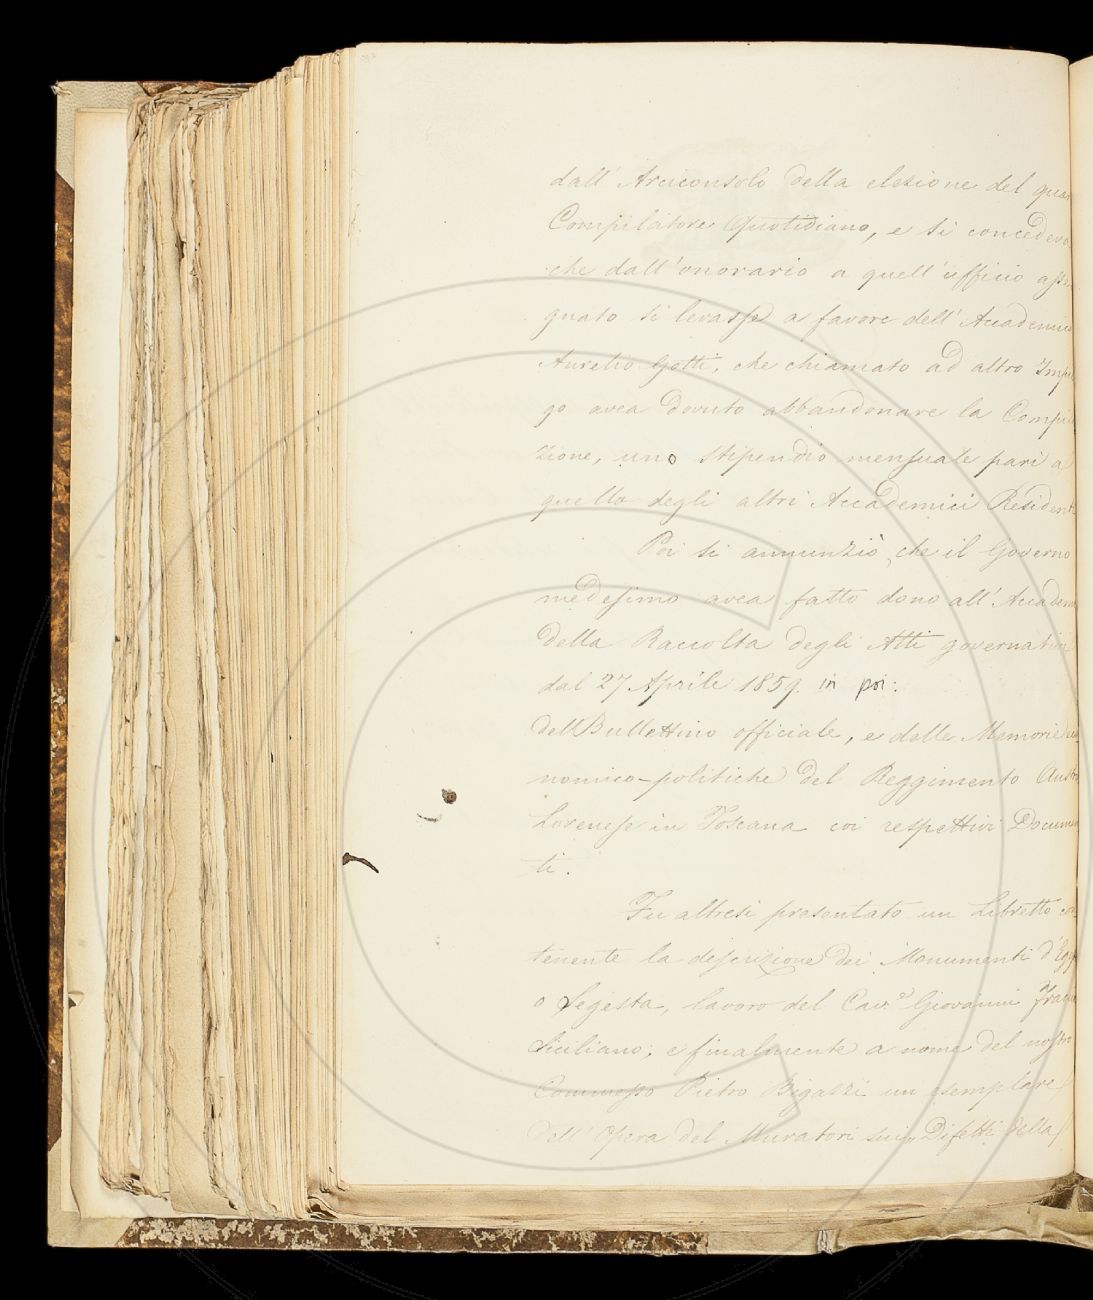 dall' Arciconsolo della elezione del quar
Compilatore Quotidiano, e si concedeva
che dall'onorario a quell'ufficio asse
gnato si levasse a favore dell'Accademico
Aurelio Gotti, che chiamato ad altro Impie
go avea dovuto abbandonare la Compila
zione, uno stipendio mensuale pari a
quello degli altri Accademici Residenti
Poi si annunziò, che il Governo
medesimo avea fatto dono all'Accademia
della Raccolta degli Atti governativi
dal 27 Aprile 1859. in poi:
dell Bullettino officiale, e delle Memorie eco
nomico-politiche del Reggimento Austro
Lorenese in Toscana coi respettivi Documen
ti.
Fu altresì presentato un Libretto con
tenente la descrizione dei Monumenti d'Eges
o Segesta, lavoro del Cav.e Giovanni
Siciliano; e finalmente a nome del nostro
Commesso Pietro Bigazzi un esemplare
dell'Opera del Muratori sui Difetti della